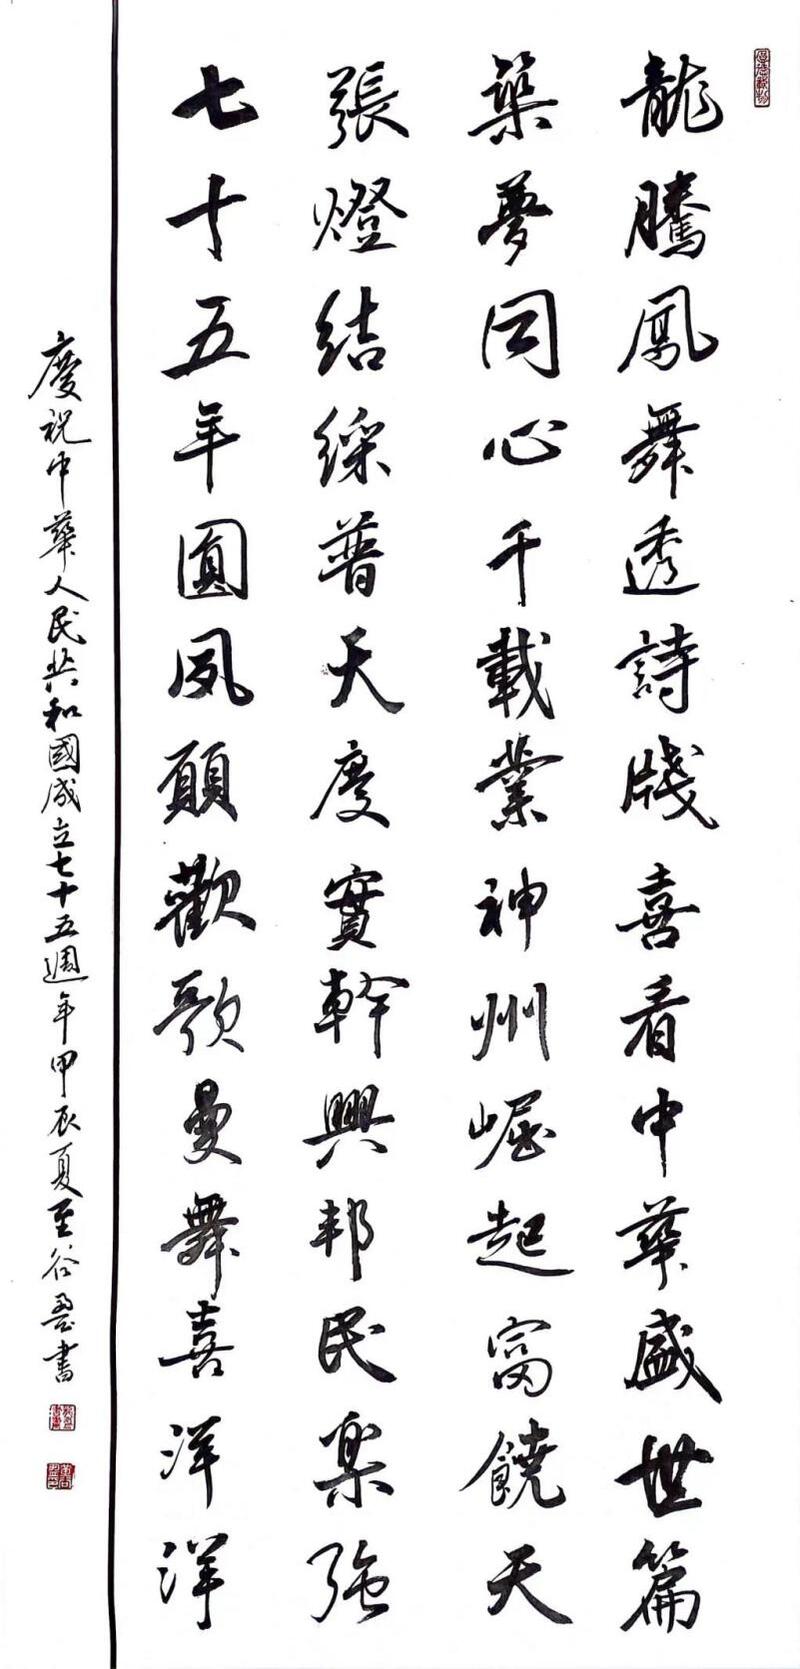 龍騰鳳舞透詩牋喜看中華盛世篇
築夢同心千載業神州崛起富饒天
張燈結綵普天慶實幹興邦民樂強
七十五年圓夙願歡歌曼舞喜洋洋
慶祝中華人民共和國成立七十五週年甲辰夏至谷盈書